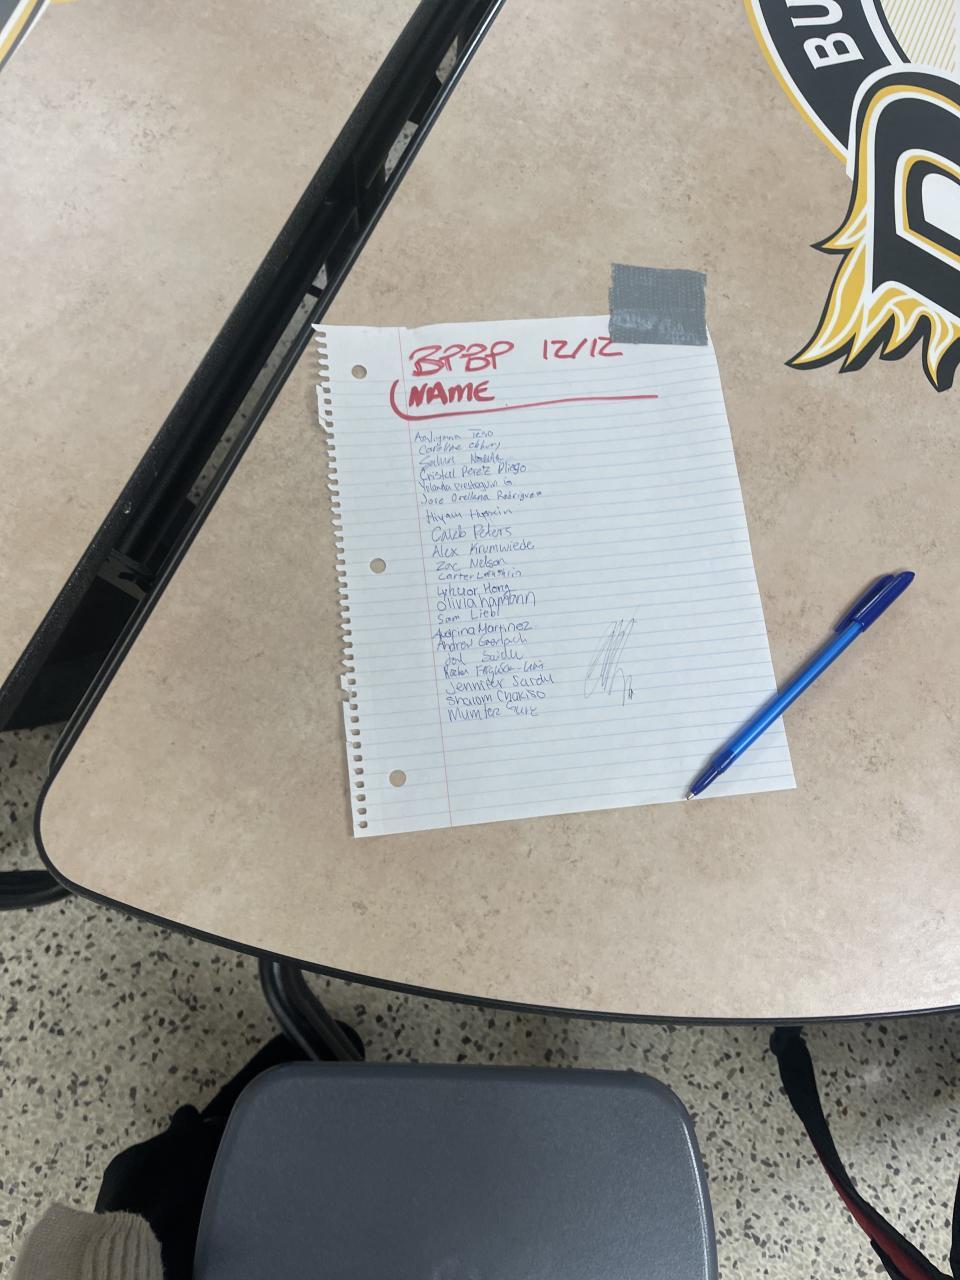 BU
BPBP 12/12
NAME
Aaliyana Teso
Caroline
Salma
Cristal Perez Pliego
Yolanda G
Jose Orellana Rodriguez
Hiyam Hussein
Caleb Peters
Alex Krumwiede
Zac Nelson
Carter
Hong
Olivia hamann
Sam Liebl
Andrina Martinez
Andrew Gerlach
Saidu
Ferguson-Lewis
Jennifer Sardu
Shalom Chakiso
Mumtez